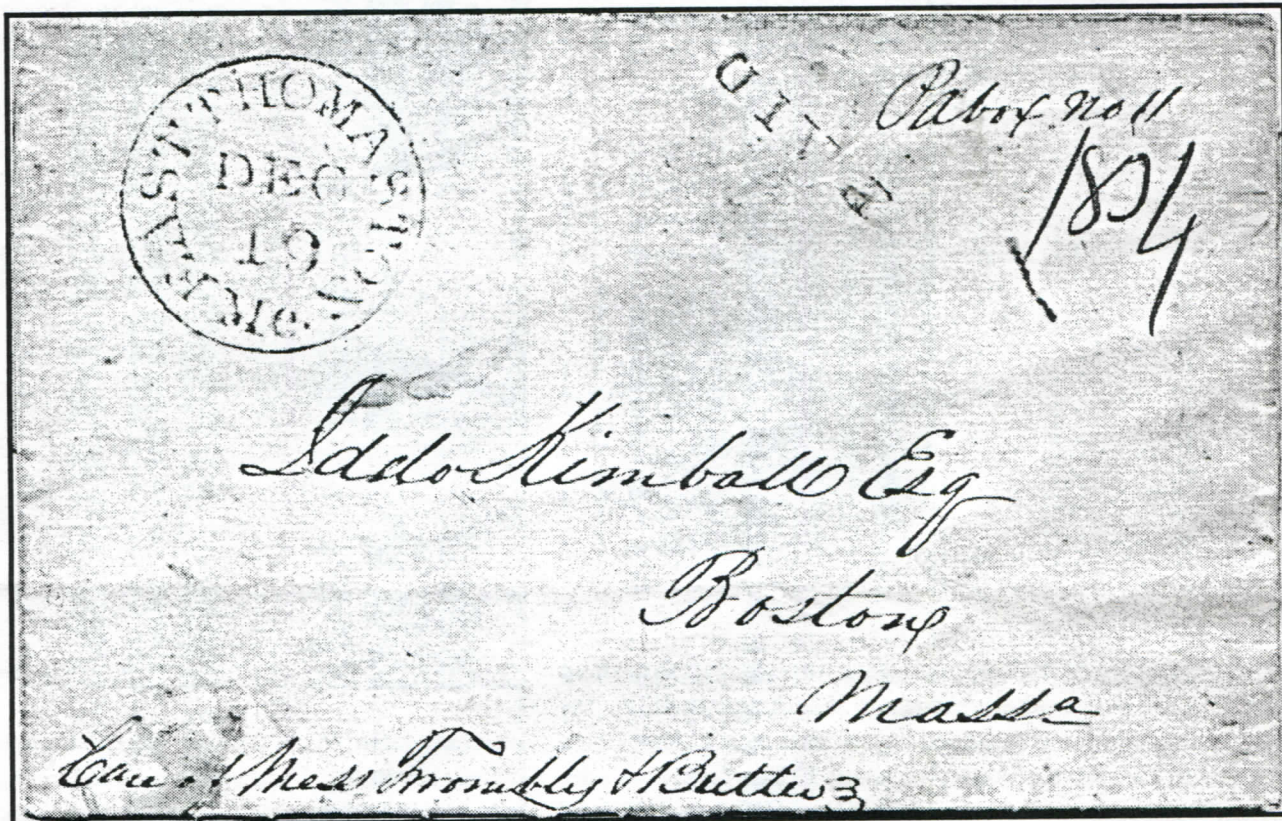 EAST THOMASTON Me.
DEC
19
PAID
Pd box no 11
18 3/4
Iddo Kimball Esq
Boston
Massa
Care of Mess Trombly & Butters